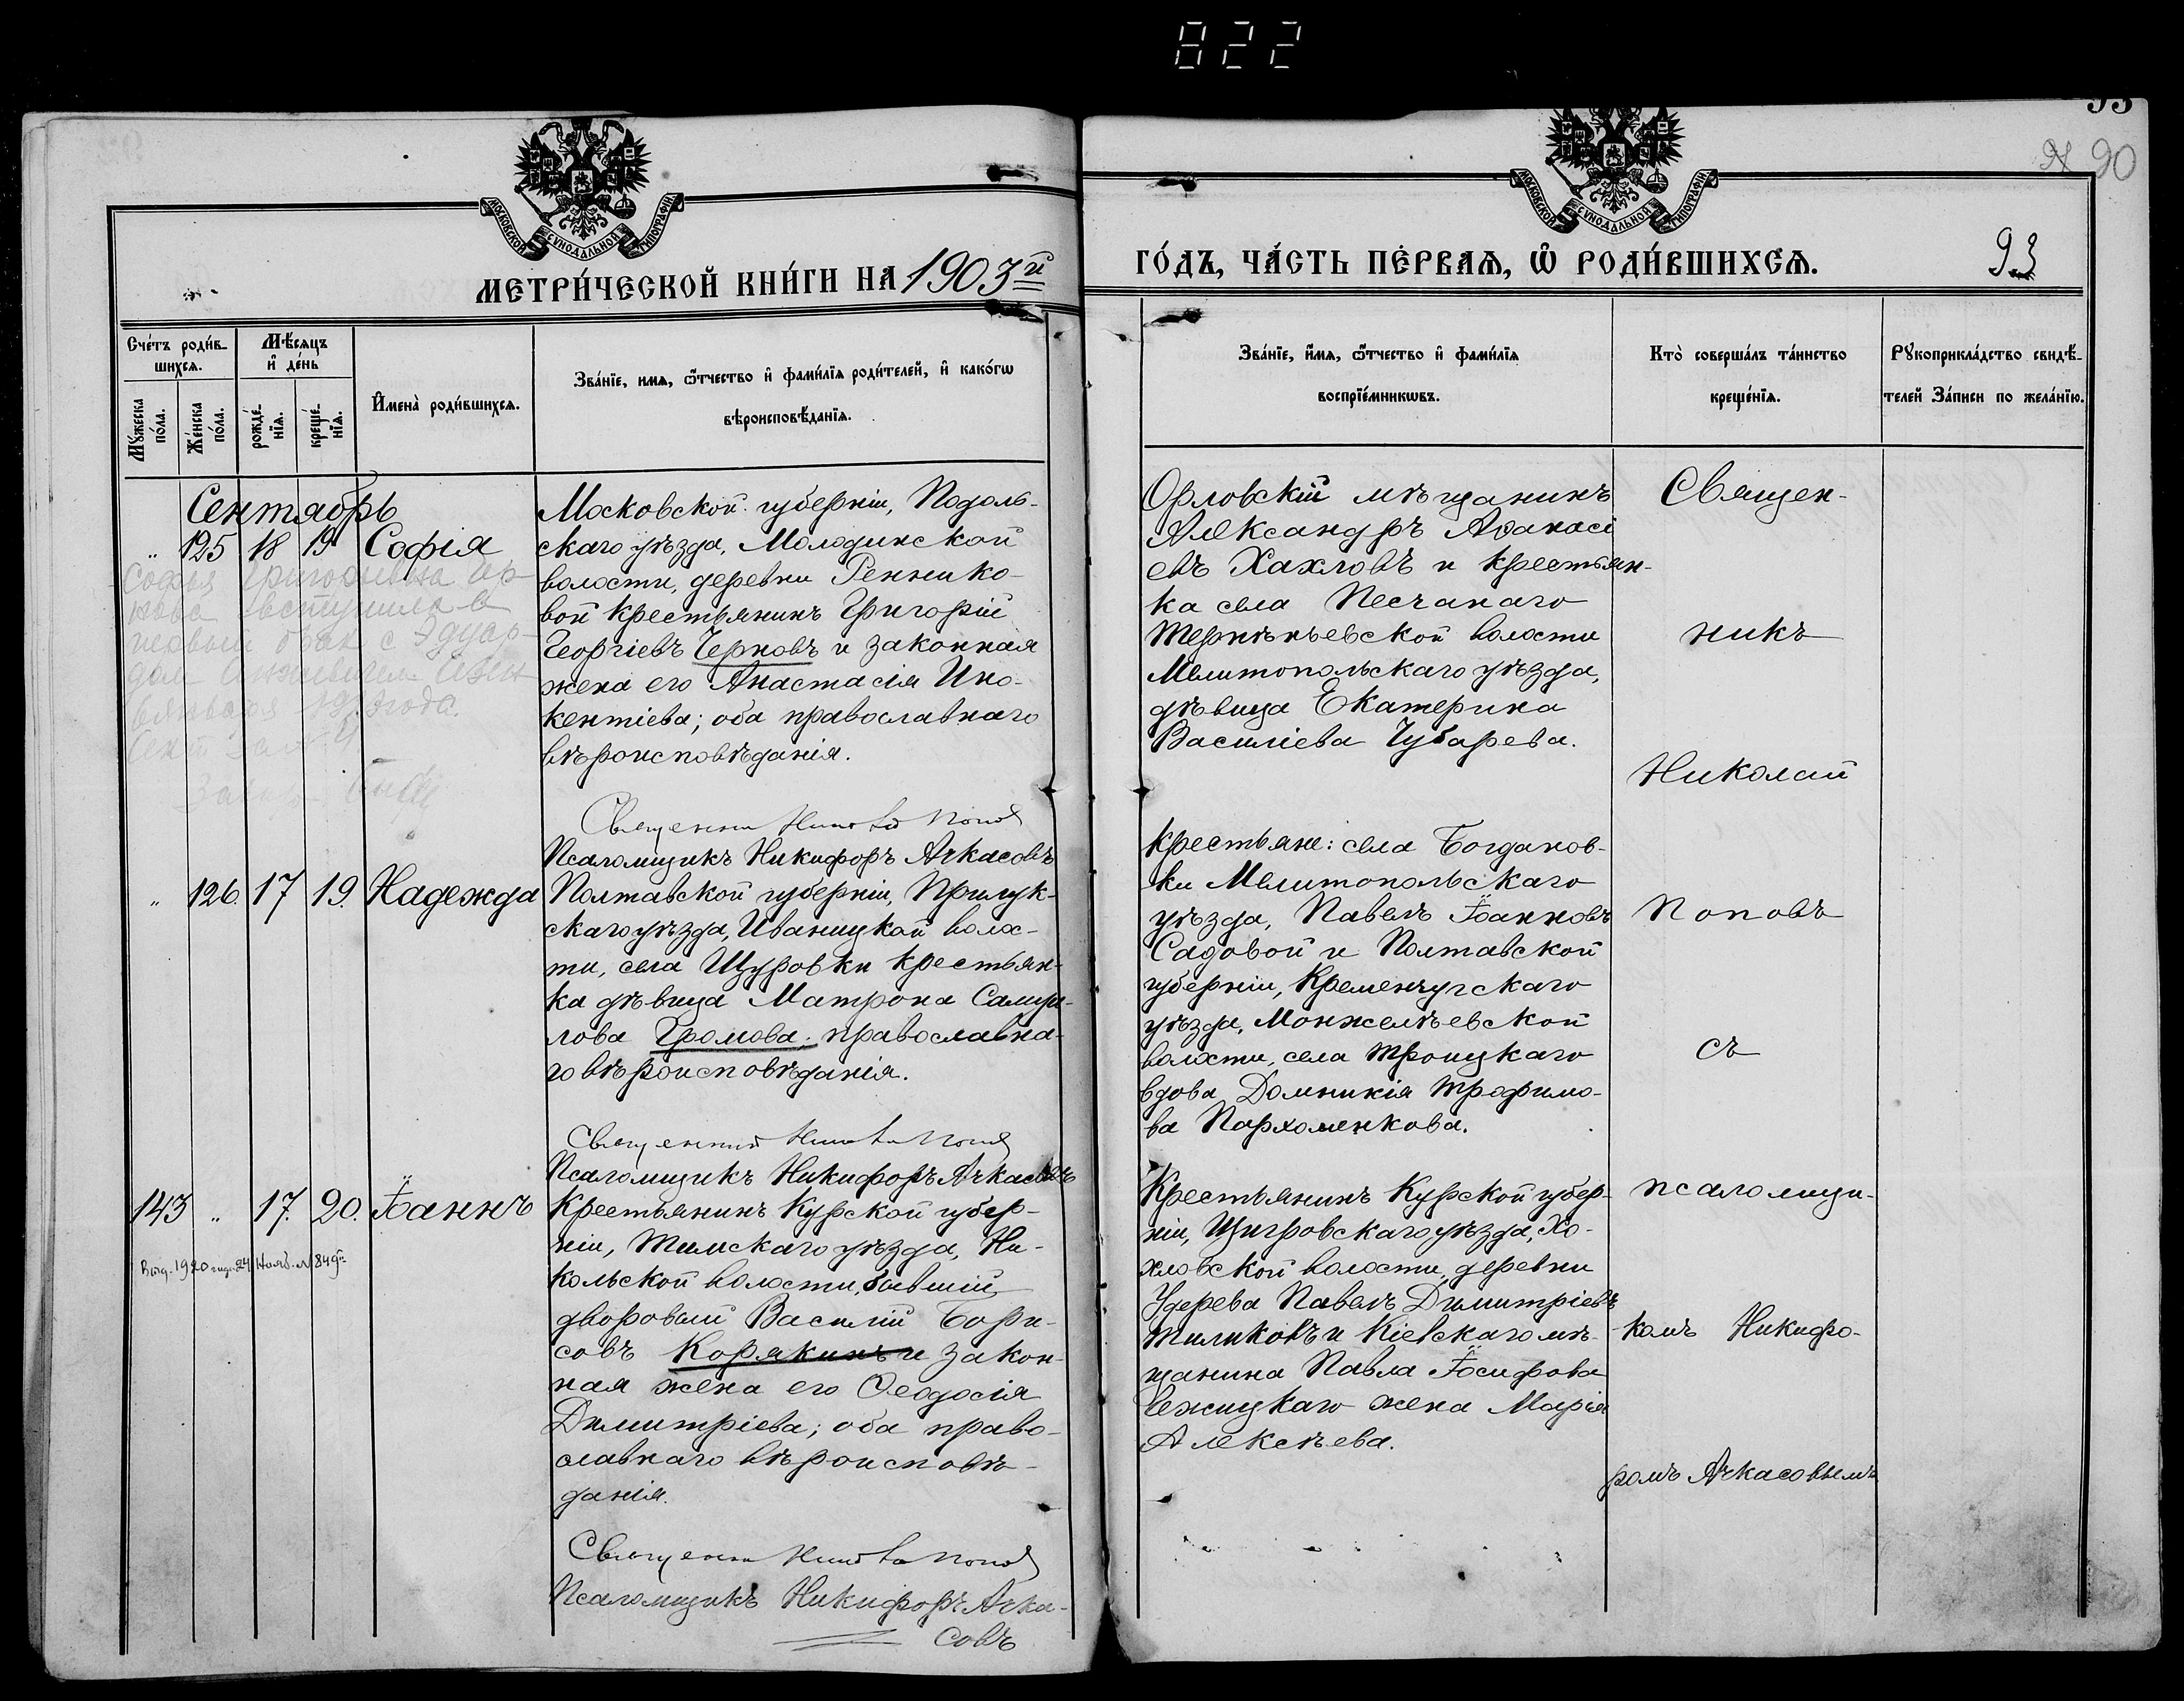 822
93
90
МОСКОВСКОЙ СУНОДАЛЬНОЙ ТИПОГРАФІИ
МОСКОВСКОЙ СУНОДАЛЬНОЙ ТИПОГРАФІИ
МЕТРИ́ЧЕСКОЙ КНИ́ГИ НА 1903й
ГО́ДЪ, ЧА́СТЬ ПЕ́РВАѦ, Ѽ РОДИ́ВШИХСѦ.
93
Сче́тъ роди́в-
шихсѧ.
Мꙋ́жеска
по́ла.
Же́нска
по́ла.
Мѣ́сѧцъ
и҆ де́нь
рожде́-
нїѧ.
креще́-
нїѧ.
И҆мена̀ роди́вшихсѧ.
Зва́нїе, имѧ, ѻ҆́тчество и҆ фами́лїѧ роди́телей, и҆ како́гѡ
вѣроисповѣ́данїѧ.
Зва́нїе, и҆́мѧ, ѻ҆́тчество и҆ фами́лїѧ
воспрїе́мникѡвъ.
Кто̀ соверша́лъ та́инство
креще́нїѧ.
Рꙋкоприкла́дство свидѣ́-
телей За́писи по жела́нїю.
Сентябрь
" 125 18 19 Софія
София Григорьевна Чер-
нова вступила в
первый брак с Эдуар-
дом
января
Московской губерніи, Подоль-
скаго уѣзда, Молодинской
волости, деревни Реннико-
вой крестьянинъ Григорій
Георгіевъ Черновъ и законная
жена его Анастасія Ино-
кентіева; оба православнаго
вѣроисповѣданія.
Священни Николай Попов
Псаломщикъ Никифоръ Ачкасовъ
Орловскій мѣщанинъ
Александръ Аѳанасі
евъ Хахловъ и крестьян-
ка села Песчанаго
Тернѣньевской волости
Мелитопольскаго уѣзда,
дѣвица Екатерина
Василіева Чубарева.
" 126. 17 19. Надежда
Полтавской губерніи, Прилук-
скаго уѣзда, Иваницкой волос-
ти, села Щуровки крестьян-
ка дѣвица Матрона Самуи-
лова Громова; православна-
го вѣроисповѣданія.
Священник Николай Попов
Псаломщикъ Никифоръ Ачкасовъ
крестьяне: села Богданов-
ки Мелитопольскаго
уѣзда, Павелъ Іоанновъ
Садовой и Полтавской
губерніи, Кременчугскаго
уѣзда, Монжелѣевской
волости, села Троицкаго
вдова Домникія Трофимо-
ва Пархоменкова.
143 " 17. 20. Іоаннъ
Выд. 1920 года 24 Нояб. № 849
Крестьянинъ Курской губер-
ніи, Тимскаго уѣзда, Ни-
кольской волости, бывшій
дворовый Василій Бори-
совъ Корякинъ и закон-
ная жена его Ѳеодосія
Димитріева; оба право-
славнаго вѣроисповѣ-
данія.
Священни Николай Попов
Псаломщикъ Никифоръ Ачка-
совъ
Крестьянинъ Курской губер-
ніи, Щигровскаго уѣзда, Хо-
хловской волости, деревни
Удерева Павелъ Димитріевъ
Тиликовъ и Кіевскаго мѣ-
щанина Павла Іосифова
Вежицкаго жена Марія
Алексѣева.
Священ-
никъ
Николай
Поповъ
съ
псаломщи-
комъ Никифо-
ромъ Ачкасовымъ